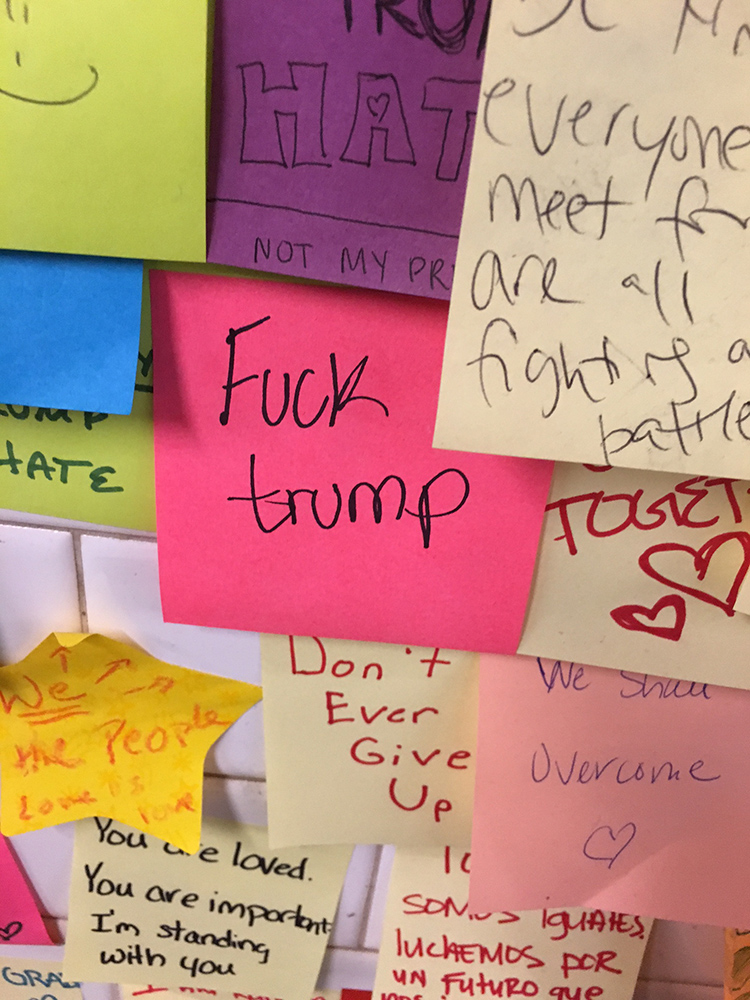 HAT
NOT MY PR
everyone
meet
are all
fighting a
battle
HATE
Fuck
trump
TOGET
We
the People
Love is
Don't
Ever
Give
Up
We shall
Overcome
You are loved.
You are important
I'm standing
with you
SOMOS IGUALES.
LUCHEMOS POR
UN FUTURO QUE